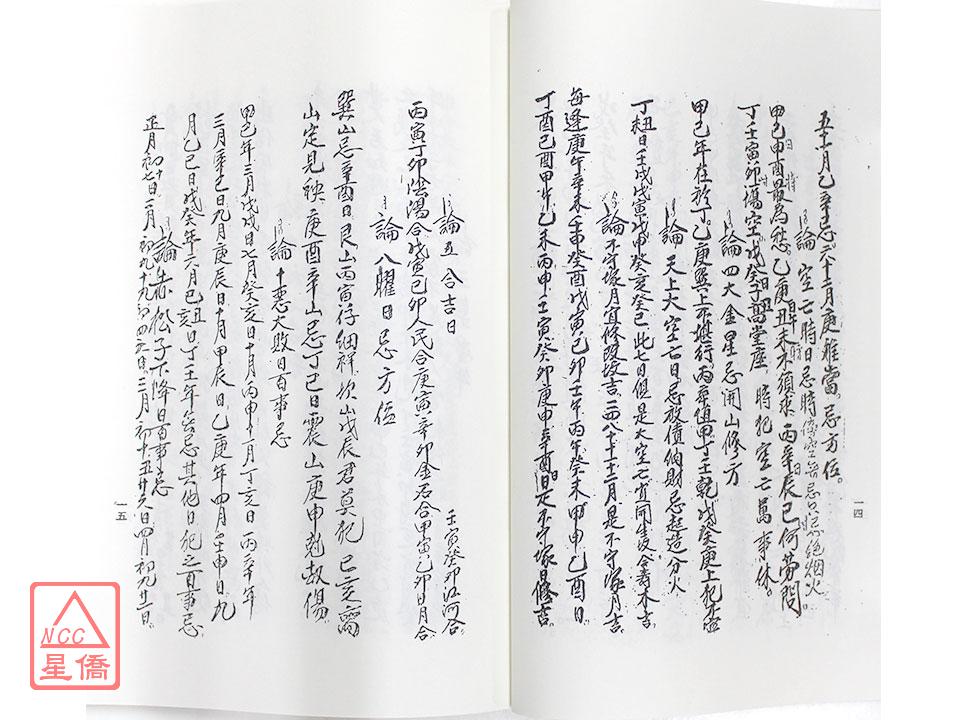 五十一月乙辛忌六十二月庚雅當。忌方位。
論空亡時日忌時
甲己申酉最為愁。乙庚午未不須求。丙辛辰巳何勞問。
丁壬寅卯塲空。戊癸子丑高堂座 時犯空亡萬事休。
論四大金星忌開山修方
甲己年在於丁。乙庚巽上不堪行丙辛值甲丁壬乾戊癸庚上犯
論天上大空亡日忌放債納財忌起造分火
丁丑日壬戌戊寅戊甲癸亥癸巳此七日俱是大空亡宜開生没合壽木吉
論不守塚月宜修改没吉。二四八十十一十二月是不守塚月吉。
每逢庚午辛未壬申癸酉戊寅己卯壬午丙午癸未甲申乙酉日。
丁酉己酉甲午乙未丙申壬寅癸卯庚申辛酉日是不守塚日修吉。
一四
論五合吉日
壬寅癸卯江河合
丙寅丁卯陰陽合戊寅己卯人民合庚寅辛卯金石合甲寅乙卯日月合
論八曜日忌方位
巽山忌辛酉日艮山丙寅仔細詳坎山戊辰君莫犯 己亥離
山定見殃 庚酉辛山忌丁巳日震山庚申尅敖傷
論十惡大敗日百事忌
甲己年三月戊戌日七月癸亥日十月丙申十一月丁亥日丙辛年
三月辛巳日九月庚辰日十月甲辰日乙庚年四月壬申日九
月乙巳日戊癸年六月己丑日丁壬年無忌其他日犯之百事忌
論赤松子下降日百事忌
正月初七初十日二月初九十九
日三月初十五廿六日四月初九廿二日
一五
NCC
星僑